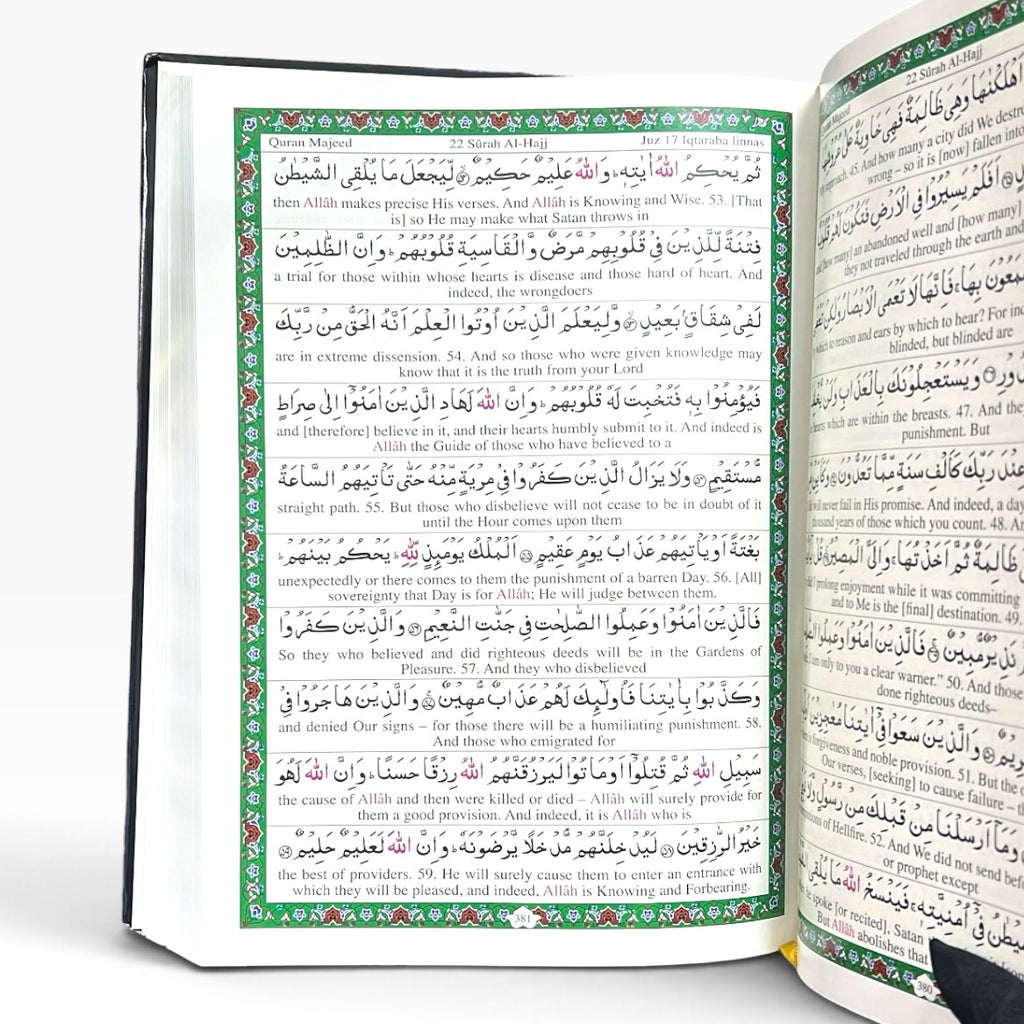 22 Sûrah Al-Hajj
اَهْلَكْنٰهَا وَهِیَ ظَالِمَةٌ فَهِیَ خَاوِیَةٌ عَلٰی عُرُوْشِهَا
approach. 45. And how many a city did We destroy
wrong – so it is [now] fallen into
اَفَلَمْ یَسِیْرُوْا فِی الْاَرْضِ فَتَكُوْنَ لَهُمْ قُلُوْبٌ
[how many] an abandoned well and [how many]
they not traveled through the earth and
بِهَا ۚ فَاِنَّهَا لَا تَعْمَی الْاَبْصَارُ وَلٰكِنْ تَعْمَی
which to reason and ears by which to hear? For
blinded, but blinded are
وَیَسْتَعْجِلُوْنَكَ بِالْعَذَابِ وَلَنْ یُّخْلِفَ
hearts which are within the breasts. 47. And they
punishment. But
عِنْدَ رَبِّكَ كَاَلْفِ سَنَةٍ مِّمَّا تَعُدُّوْنَ
will never fail in His promise. And indeed, a day
thousand years of those which you count. 48. And
ظَالِمَةٌ ثُمَّ اَخَذْتُهَا ۚ وَاِلَیَّ الْمَصِیْرُ
I prolong enjoyment while it was committing
and to Me is the [final] destination. 49.
نَذِیْرٌ مُّبِیْنٌ فَالَّذِیْنَ اٰمَنُوْا وَعَمِلُوا
I am only to you a clear warner.” 50. And those
done righteous deeds–
وَالَّذِیْنَ سَعَوْا فِیْۤ اٰیٰتِنَا مُعٰجِزِیْنَ
is forgiveness and noble provision. 51. But the
Our verses, [seeking] to cause failure –
وَمَاۤ اَرْسَلْنَا مِنْ قَبْلِكَ مِنْ رَّسُوْلٍ وَّلَا
of Hellfire. 52. And We did not send
or prophet except
فِیْۤ اُمْنِیَّتِهٖ ۚ فَیَنْسَخُ اللّٰهُ مَا یُلْقِی
spoke [or recited], Satan
But Allâh abolishes that
380
Quran Majeed 22 Sûrah Al-Hajj Juz 17 Iqtaraba linnas
ثُمَّ یُحْكِمُ اللّٰهُ اٰیٰتِهٖ ؕ وَاللّٰهُ عَلِیْمٌ حَكِیْمٌ ﴿۵۲﴾ لِّیَجْعَلَ مَا یُلْقِی الشَّیْطٰنُ
then Allâh makes precise His verses. And Allâh is Knowing and Wise. 53. [That
is] so He may make what Satan throws in
فِتْنَةً لِّلَّذِیْنَ فِیْ قُلُوْبِهِمْ مَّرَضٌ وَّالْقَاسِیَةِ قُلُوْبُهُمْ ؕ وَاِنَّ الظّٰلِمِیْنَ
a trial for those within whose hearts is disease and those hard of heart. And
indeed, the wrongdoers
لَفِیْ شِقَاقٍۭ بَعِیْدٍ ﴿۵۳﴾ وَّلِیَعْلَمَ الَّذِیْنَ اُوْتُوا الْعِلْمَ اَنَّهُ الْحَقُّ مِنْ رَّبِّكَ
are in extreme dissension. 54. And so those who were given knowledge may
know that it is the truth from your Lord
فَیُؤْمِنُوْا بِهٖ فَتُخْبِتَ لَهٗ قُلُوْبُهُمْ ؕ وَاِنَّ اللّٰهَ لَهَادِ الَّذِیْنَ اٰمَنُوْۤا اِلٰی صِرَاطٍ
and [therefore] believe in it, and their hearts humbly submit to it. And indeed is
Allâh the Guide of those who have believed to a
مُّسْتَقِیْمٍ ﴿۵۴﴾ وَلَا یَزَالُ الَّذِیْنَ كَفَرُوْا فِیْ مِرْیَةٍ مِّنْهُ حَتّٰی تَاْتِیَهُمُ السَّاعَةُ
straight path. 55. But those who disbelieve will not cease to be in doubt of it
until the Hour comes upon them
بَغْتَةً اَوْ یَاْتِیَهُمْ عَذَابُ یَوْمٍ عَقِیْمٍ ﴿۵۵﴾ اَلْمُلْكُ یَوْمَئِذٍ لِّلّٰهِ ؕ یَحْكُمُ بَیْنَهُمْ ؕ
unexpectedly or there comes to them the punishment of a barren Day. 56. [All]
sovereignty that Day is for Allâh; He will judge between them.
فَالَّذِیْنَ اٰمَنُوْا وَعَمِلُوا الصّٰلِحٰتِ فِیْ جَنّٰتِ النَّعِیْمِ ﴿۵۶﴾ وَالَّذِیْنَ كَفَرُوْا
So they who believed and did righteous deeds will be in the Gardens of
Pleasure. 57. And they who disbelieved
وَكَذَّبُوْا بِاٰیٰتِنَا فَاُولٰٓئِكَ لَهُمْ عَذَابٌ مُّهِیْنٌ ﴿۵۷﴾ وَالَّذِیْنَ هَاجَرُوْا فِیْ
and denied Our signs – for those there will be a humiliating punishment. 58.
And those who emigrated for
سَبِیْلِ اللّٰهِ ثُمَّ قُتِلُوْۤا اَوْ مَاتُوْا لَیَرْزُقَنَّهُمُ اللّٰهُ رِزْقًا حَسَنًا ؕ وَاِنَّ اللّٰهَ لَهُوَ
the cause of Allâh and then were killed or died – Allâh will surely provide for
them a good provision. And indeed, it is Allâh who is
خَیْرُ الرّٰزِقِیْنَ ﴿۵۸﴾ لَیُدْخِلَنَّهُمْ مُّدْخَلًا یَّرْضَوْنَهٗ ؕ وَاِنَّ اللّٰهَ لَعَلِیْمٌ حَلِیْمٌ ﴿۵۹﴾
the best of providers. 59. He will surely cause them to enter an entrance with
which they will be pleased, and indeed, Allâh is Knowing and Forbearing.
381